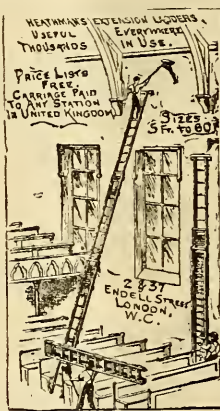 HEATHMAN'S EXTENSION LADDERS,
USEFUL EVERYWHERE
THOUSANDS IN USE.
PRICE LISTS
FREE.
CARRIAGE PAID
TO ANY STATION
IN UNITED KINGDOM
SIZES
5 FT. TO 60
2 & 37
ENDELL STREET
LONDON.
W.C.